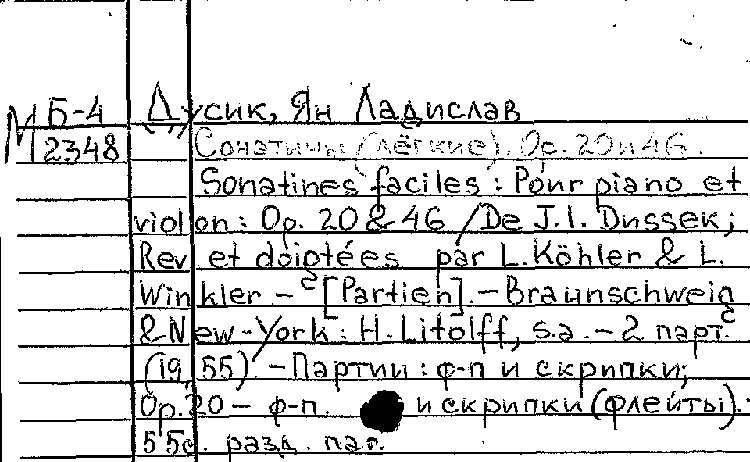 М Б-4 Дусик, Ян Ладислав
2348 Сонатины (лёгкие). Ор. 20 и 46.
Sonatines faciles : Pour piano et
violon : Op. 20 & 46 / De J.L. Dussek ;
Rev et doigtées par L. Köhler & L.
Winkler – [Partien]. – Braunschweig
& New-York : H. Litolff, s.a. – 2 парт.
(19, 55). – Партии : ф-п и скрипки;
Op. 20 – ф-п. и скрипки (флейты).
55с. разд. паг.